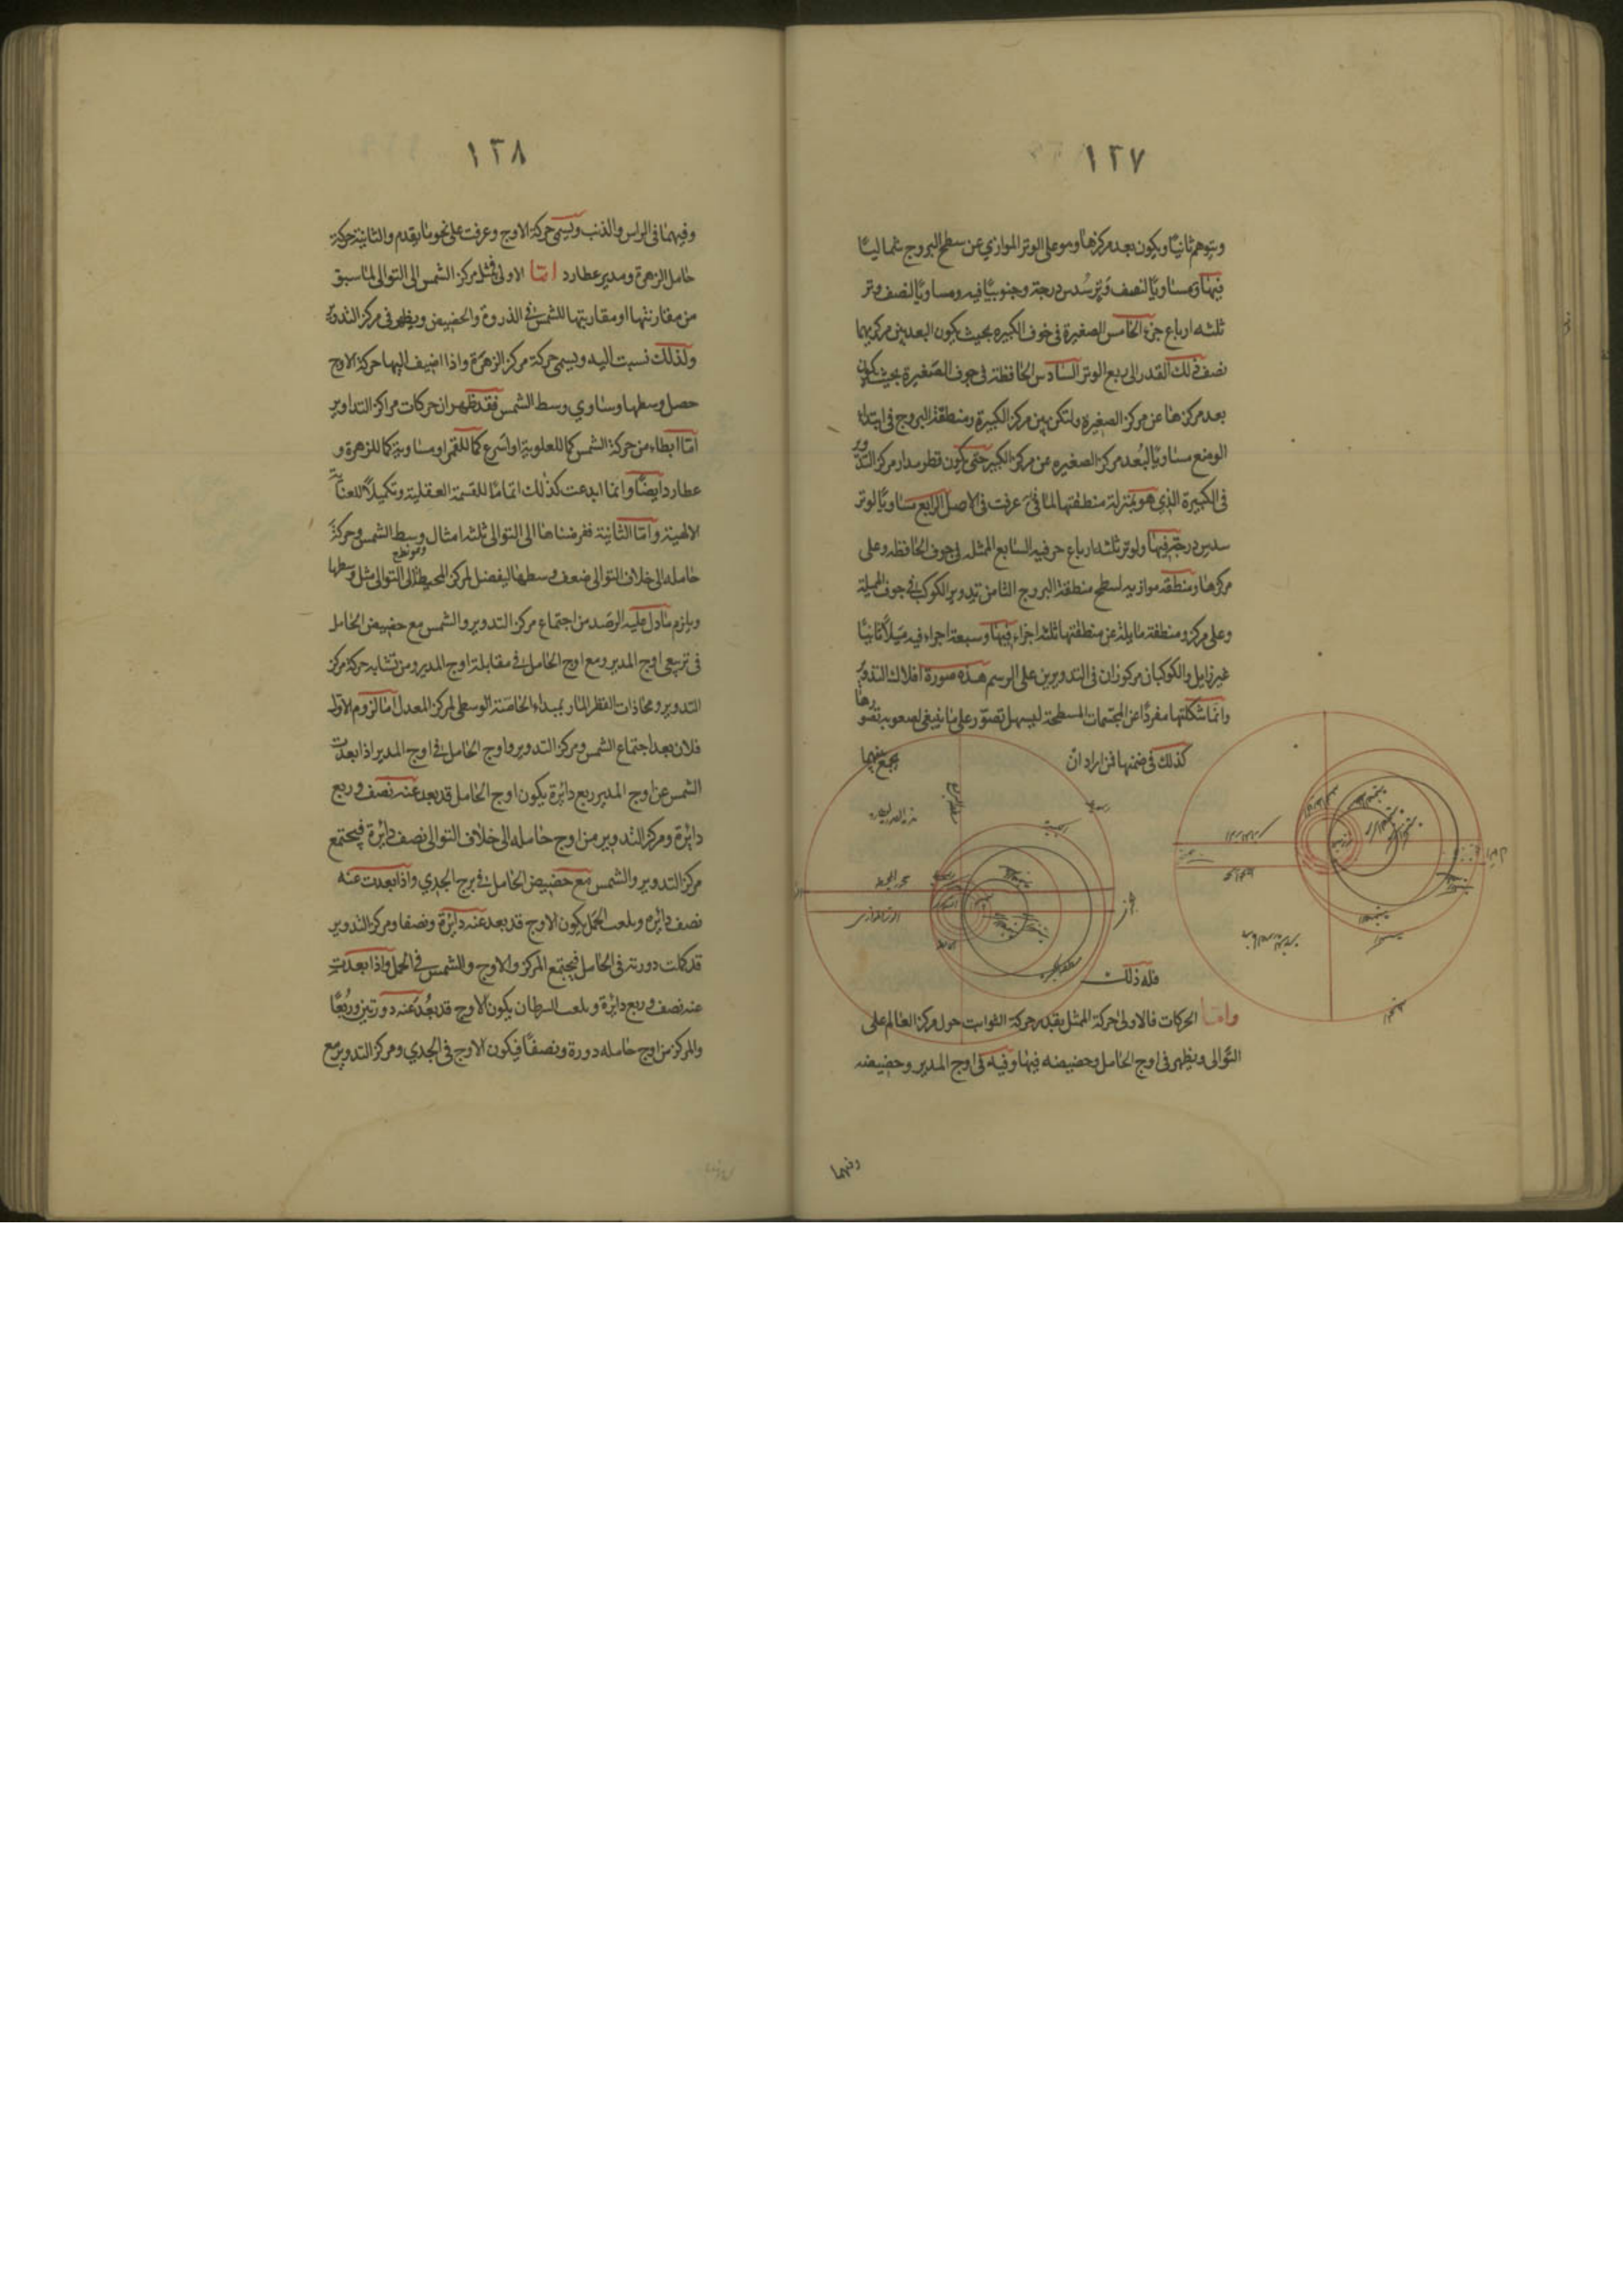 ١٢٧
ويتوهم ثانيًا ويكون بعد مركزها وهو على الوتر الموازي عن سطح البروج شماليًا
فيها ومساويًا لنصف وتر سُدس درجة وجنوبيًا فيه ومساويًا لنصف وتر
ثلثه ارباع جزء الخامس الصغيرة في خوف الكبيره بحيث يكون البعد بين مركزيهما
نصف ذلك القدر الى ربع الوتر السادس الحافظة في جوف الصغيرة بحيث يكون
بعد مركزها عن مركز الصغيره ولتكن بين مركز الكبيرة ومنطقة البروج في ابتداء
الوضع مساويًا لبُعد مركز الصغيره عن مركز الكبير حتى يكون قطر مدار مركز التدوير
في الكبيرة الذي هو بمنزلة منطقتها لما عرفت في الاصل الرابع مساويًا لوتر
سدس درجة فيها ولوتر ثلثه ارباع جزء فيه السابع الممثله في جوف الحافظه وعلى
مركزها ومنطقه موازيه لسطح منطقة البروج الثامن تدوير الكوكب في جوف المميلة
وعلى مركزه ومنطقة مايلة عن منطقتها ثلثه اجزاء فيها وسبعة اجزاء فيه ميلاً ثابتًا
غير زايل والكوكبان مركوزان في التدويرين على الرسم هذه صورة افلاك التدوير
وانما شكلتها مفردًا عن المجسمات المسطحة ليسهل تصوّر على ما ينبغي لصعوبه تصورها
كذلك في ضمنها فمن اراد ان يجمع بينهما
فله ذلك
واما الحركات فالاولى حركة الممثل بقدر حركة الثوابت حول مركز العالم على
التوالى ويظهر في اوج الحامل وحضيضه فيها وفيه في اوج المدير وحضيضه
وفيهما
١٢٨
وفيهما في الراس والذنب ويسمى حركة الاوج وعرفت على نحو ما يقدم والثانية حركة
حامل الزهرة ومدير عطارد اما الاولى فمثل مركز الشمس الى التوالى لما سبق
من مقارنتها او مقاربتها للشمس في الذروة والحضيض ويظهر في مركز التدوير
ولذلك نسبت اليه ويسمى حركة مركز الزهرة واذا اضيف اليها حركة الاوج
حصل وسطها وساوي وسط الشمس فقد ظهر ان حركات مراكز التداوير
اما ابطاء من حركة الشمس كما للعلوية او اسرع كما للقمر او مساوية كما للزهرة و
عطارد ايضًا وانما ابدعت كذلك اتمامًا للقسمة العقلية وتكميلاً للعناية
الالهية واما الثانية ففرضناها الى التوالى ثلثه امثال وسط الشمس وحركة
حامله الى خلاف التوالى ضعف وسطها ليفضل لمركز المحيط الى التوالى مثل وسطها
ويلزم ما دل عليه الرصد من اجتماع مركز التدوير والشمس مع حضيض الحامل
في تربيعى اوج المدير ومع اوج الحامل في مقابلة اوج المدير ومن تشابه حركة مركز
التدوير ومحاذات القطر المار بمبداء الخاصة الوسطى لمركز المعدل اما لزوم الاول
فلان بعد اجتماع الشمس ومركز التدوير واوج الحامل في اوج المدير اذا ابعدت
الشمس عن اوج المدير ربع دائرة يكون اوج الحامل قد بعد عنه نصف وربع
دائرة ومركز التدوير من اوج حامله الى خلاف التوالى نصف دائرة فيجتمع
مركز التدوير والشمس مع حضيض الحامل في برج الجدي واذا بعدت عنه
نصف دائره وبلغت الحمل يكون الاوج قد بعد عنه دائرة ونصفا ومركز التدوير
قد كملت دورته في الحامل فيجتمع المركز والاوج والشمس في الحمل واذا بعدت
عنه نصف وربع دائرة وبلغت السرطان يكون الاوج قد بعُد عنه دورتين ورُبعًا
والمركز من اوج حامله دورة ونصفًا فيكون الاوج في الجدي ومركز التدوير مع